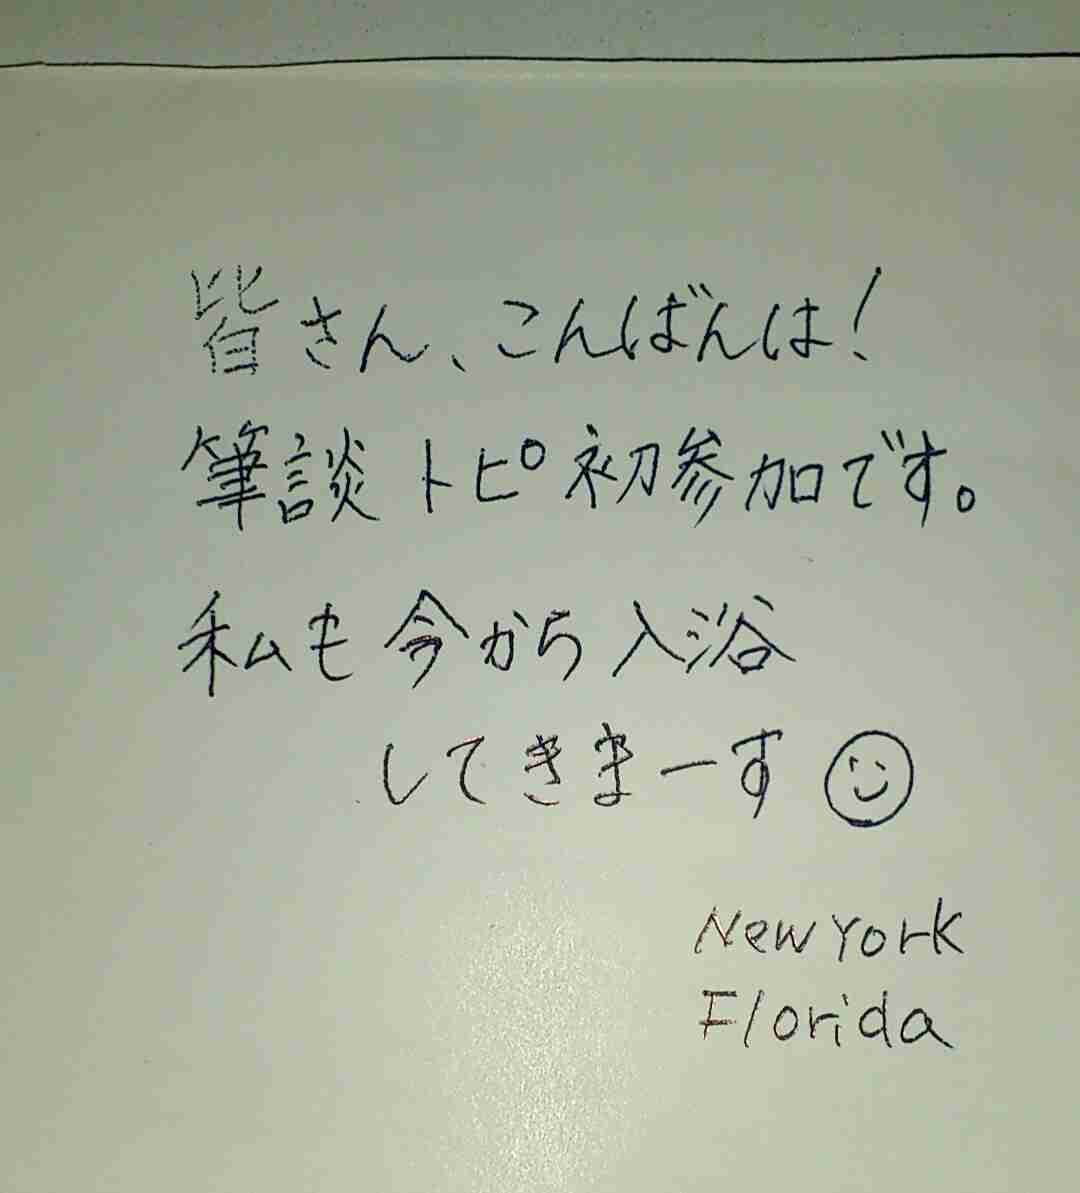 皆さん、こんばんは!
筆談トピ初参加です。
私も今から入浴
してきまーす
New York
Florida